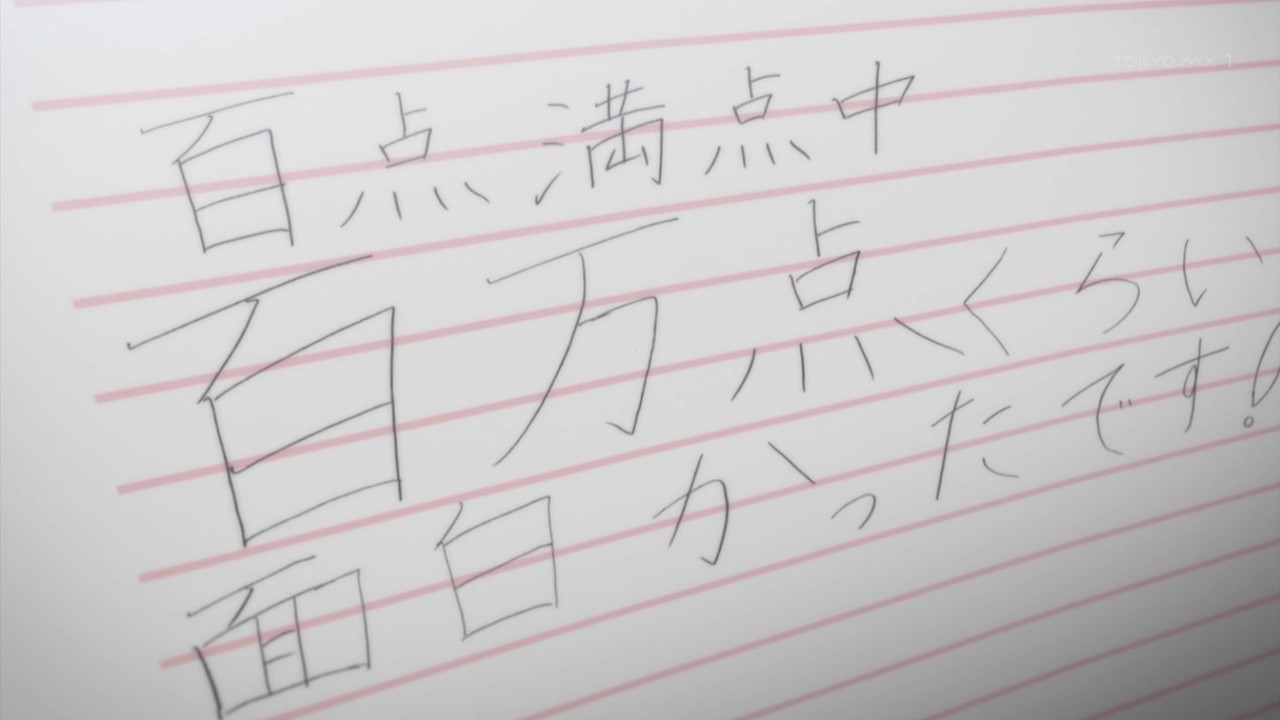 TOKYO MX 1
百点満点中
百万点くらい
面白かったです!